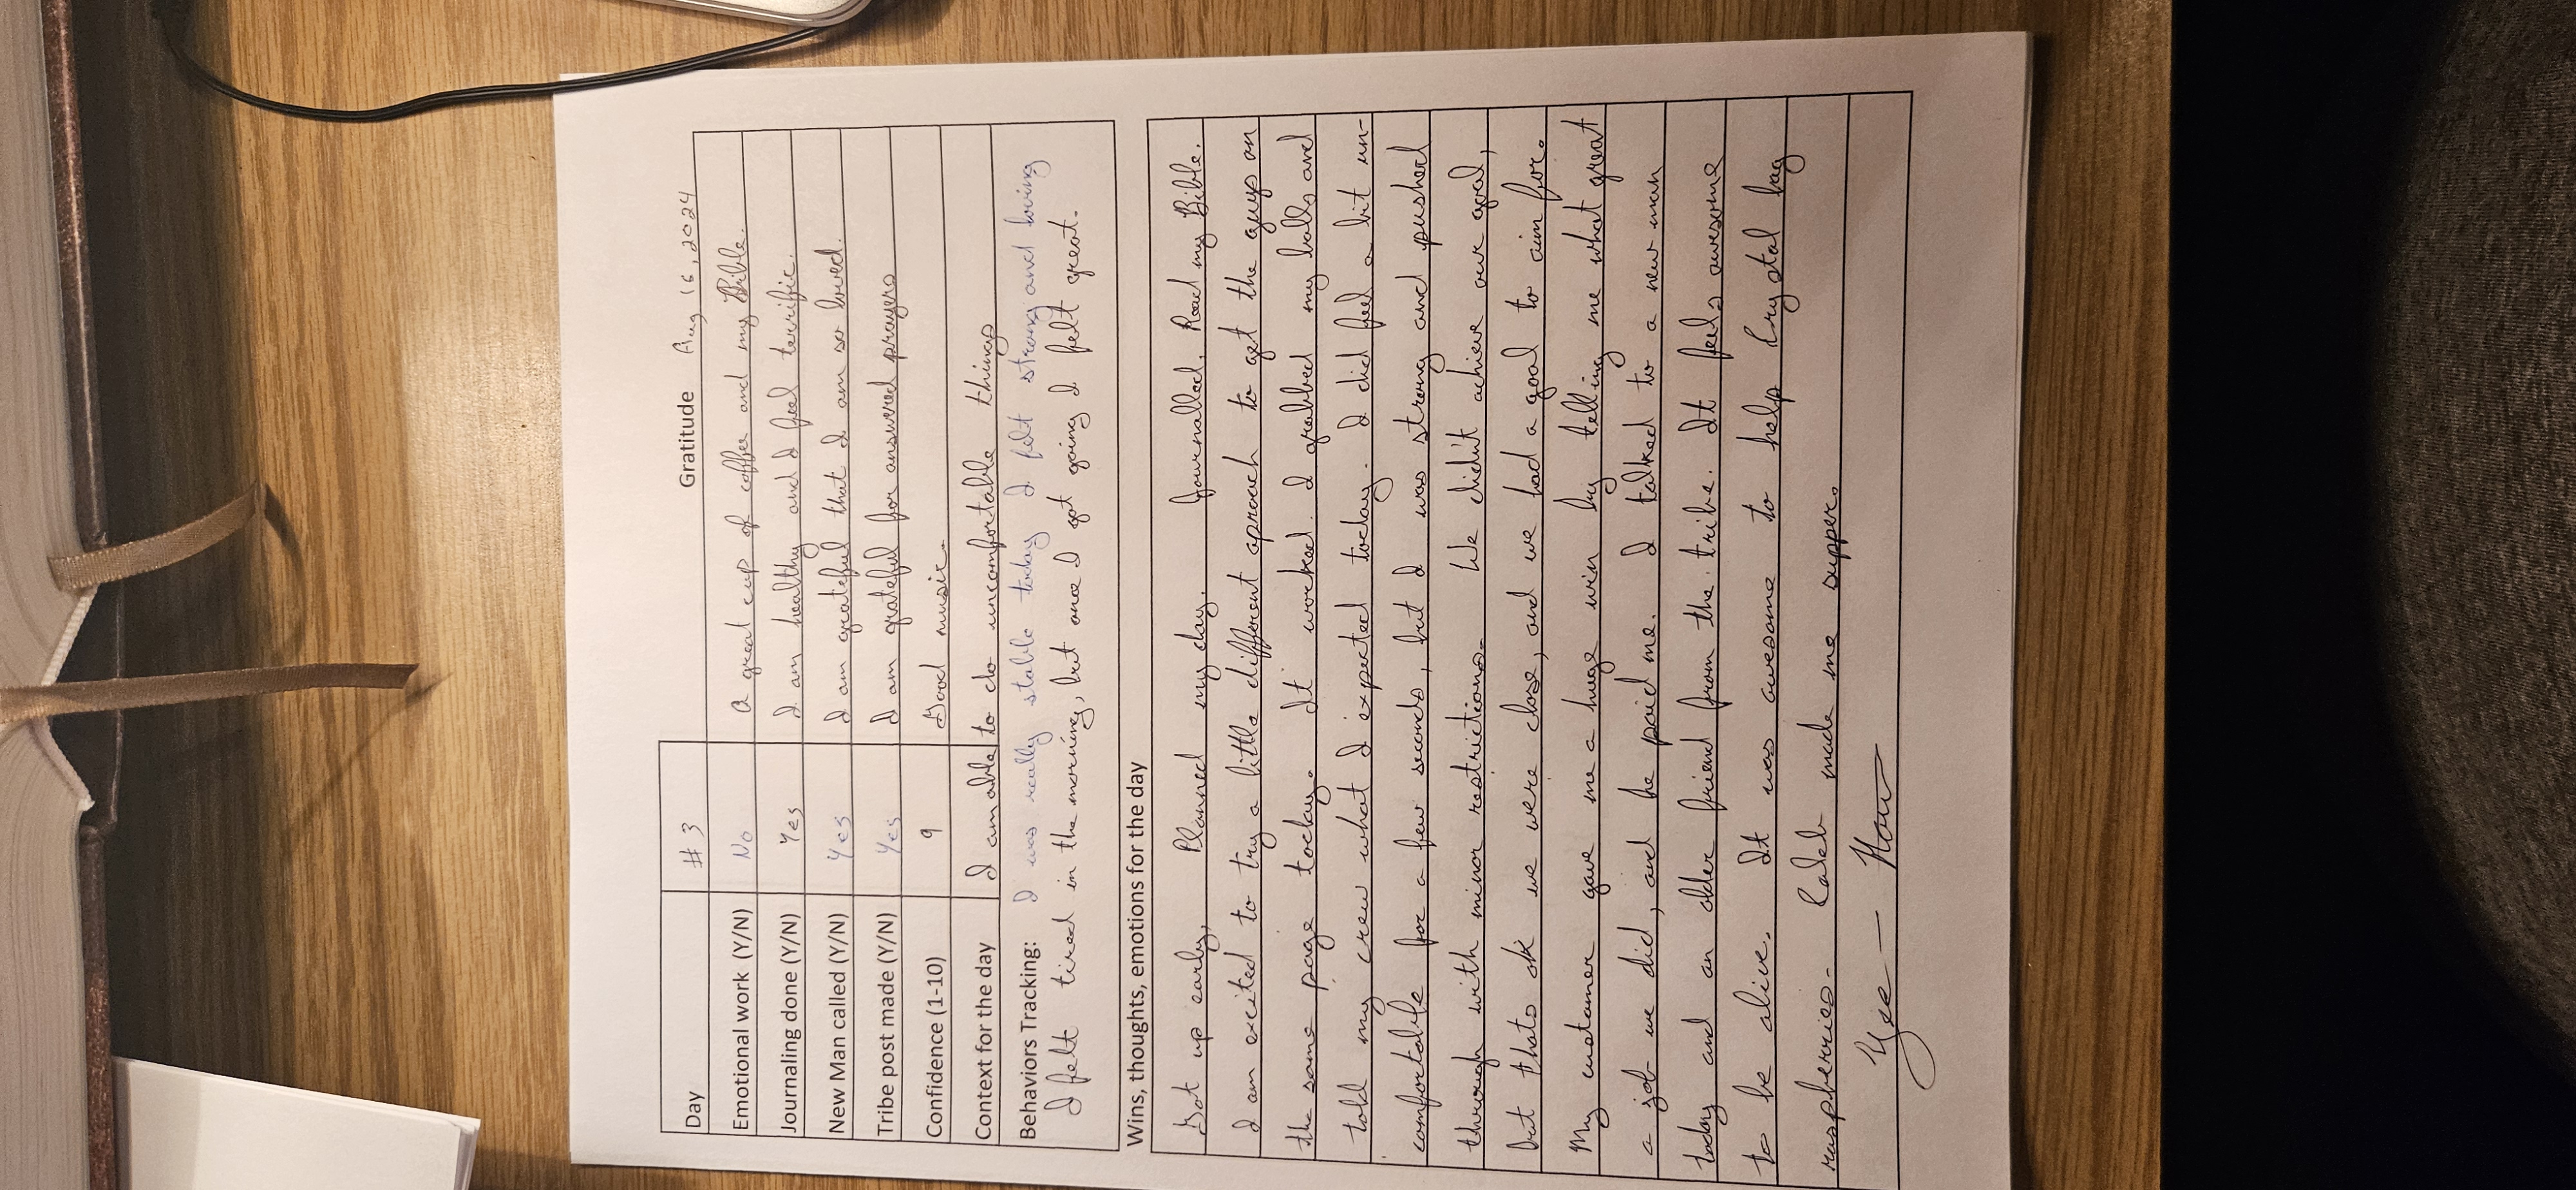 Gratitude Aug 16, 2024
Day #3
Emotional work (Y/N) No A great cup of coffee and my Bible.
Journaling done (Y/N) Yes I am healthy and I feel terrific.
New Man called (Y/N) Yes I am grateful that I am so loved.
Tribe post made (Y/N) Yes I am grateful for answered prayers
Confidence (1-10) 9 Good music.
Context for the day I am able to do uncomfortable things
Behaviors Tracking: I was really stable today I felt strong and loving
I felt tired in the morning, but once I got going I felt great.
Wins, thoughts, emotions for the day
Got up early, Planned my day. Journalled. Read my Bible.
I am excited to try a little different aproach to get the guys on
the same page today. It worked. I grabbed my balls and
told my crew what I expected today. I did feel a bit un-
comfortable for a few seconds, but I was strong and pushed
through with minor restrictions. We didn't achieve our goal,
but thats ok we were close, and we had a goal to aim for.
My customer gave me a huge win by telling me what great
a job we did, and he paid me. I talked to a new man
today and an older friend from the tribe. It feels awesome
to be alive. It was awesome to help Crystal bag
raspberries. Caleb made me supper.
Yee - Haw